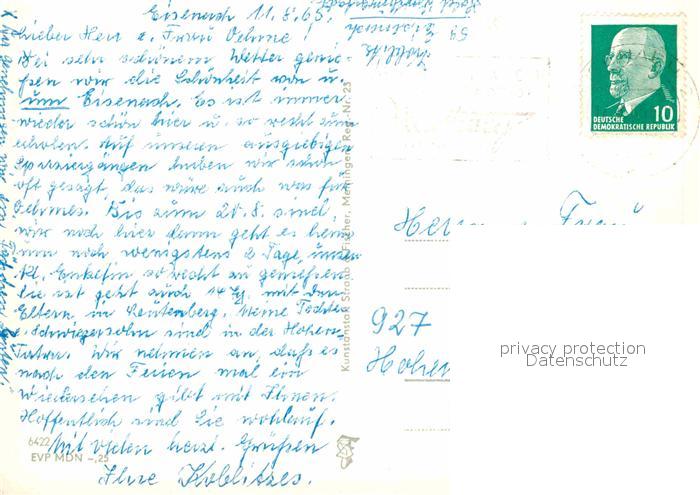 Eisenach 11.8.65.
Lieber Herr u. Frau Oehme!
Bei sehr schönem Wetter genie-
ßen wir die Schönheit von u.
um Eisenach. Es ist immer
wieder schön hier u. so recht zum
erholen. Auf unseren ausgiebigen
Spaziergängen haben wir schon
oft gesagt, das wäre auch was für
Oehmes. Bis zum 20.8. sind
wir noch hier dann geht es heim
um noch wenigstens Tage, unsere
kl. Enkelin so recht zu genießen.
Sie ist jetzt auch mit den
Eltern in Leutenberg. Meine Tochter
u. Schwiegersohn sind in der Hohen
Tatra. Wir nehmen an, daß es
nach den Ferien mal ein
Wiedersehen gibt mit Ihnen.
Hoffentlich sind Sie wohlauf.
Mit vielen herzl. Grüßen
Ihre Koblitzes.
59 Eisenach
Kunstanstalt Straub & Fischer, Meiningen, Reg. Nr. 23
6422
EVP MDN -,25
DEUTSCHE
DEMOKRATISCHE REPUBLIK
10
Herrn u. Frau
927
Hohen
privacy protection
Datenschutz